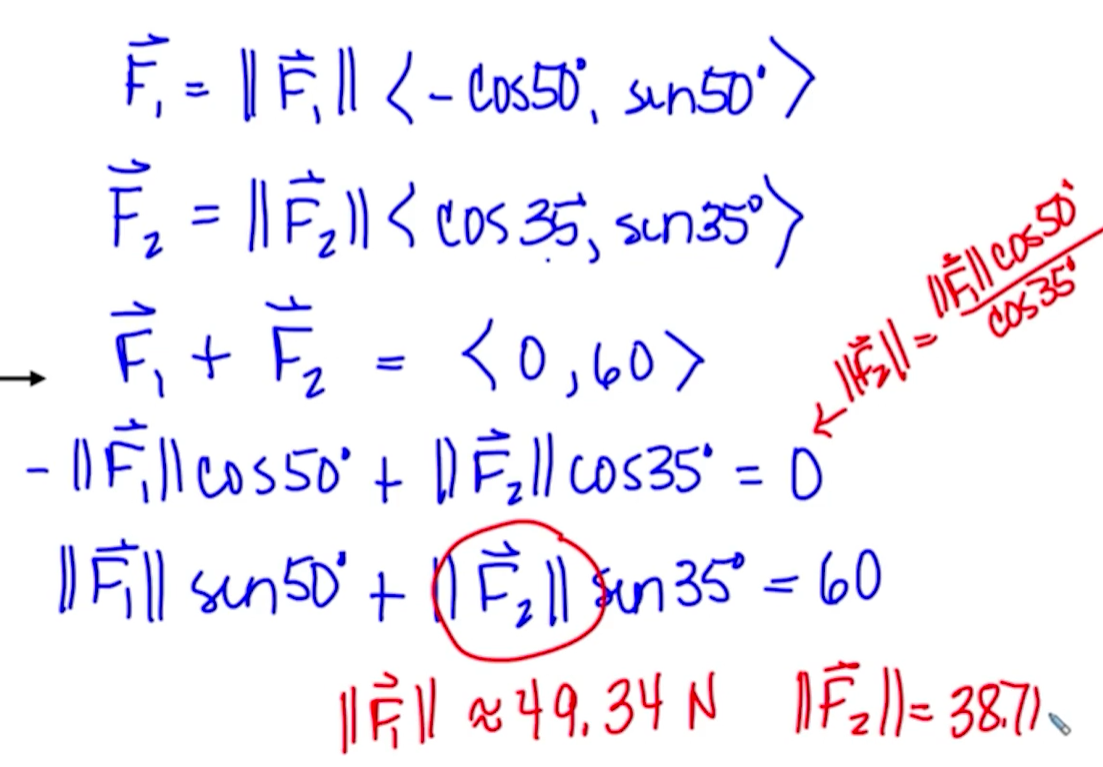 F⃗₁ = ‖F⃗₁‖ ⟨-cos50°, sin50°⟩
F⃗₂ = ‖F⃗₂‖ ⟨cos35°, sin35°⟩
F⃗₁ + F⃗₂ = ⟨0, 60⟩
‖F⃗₂‖ = ‖F⃗₁‖cos50° / cos35°
-‖F⃗₁‖cos50° + ‖F⃗₂‖cos35° = 0
‖F⃗₁‖ sin50° + ‖F⃗₂‖ sin35° = 60
‖F⃗₁‖ ≈ 49.34 N ‖F⃗₂‖ = 38.71